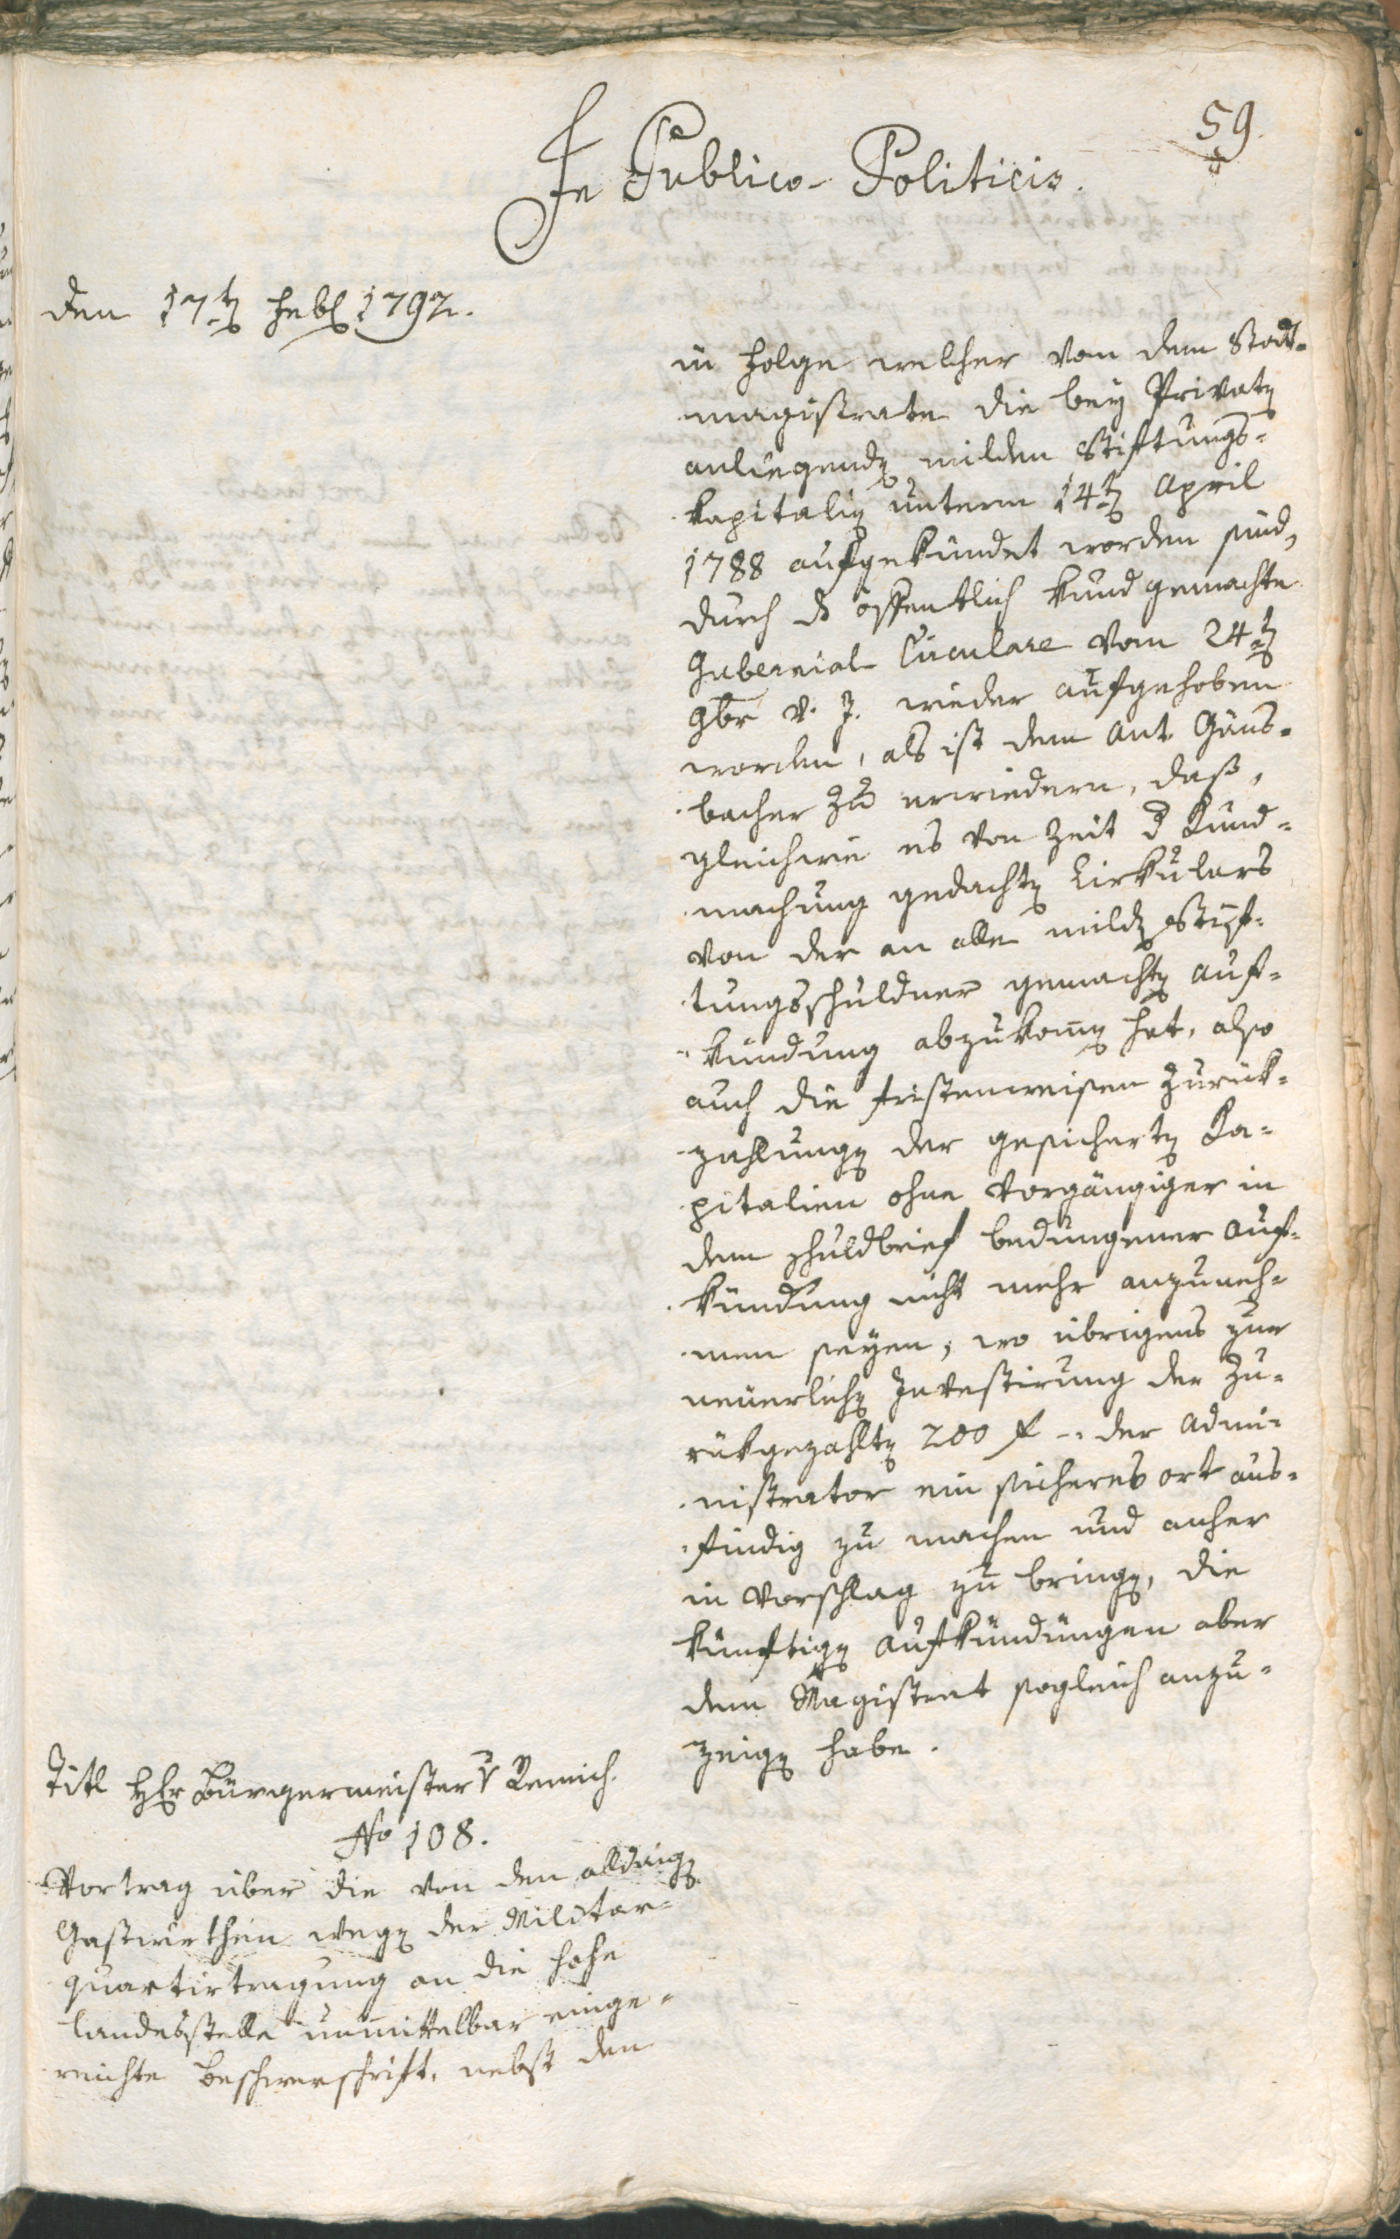 59.
In Publico-Politicis.
Den 17ten Febr 1792.
in Folge welcher von dem Stadt-
magistrate die bey Privaten
anliegenden milden Stiftungs-
kapitalien unterm 14ten April
1788 aufgekündet worden sind,
durch das öffentlich kundgemachte
Gubernial Circulare vom 24ten
9br v. J. wieder aufgehoben
worden, als ist dem Ant. Gäns-
bacher zu erwiedern, daß,
gleichwie es von Zeit der Kund-
machung gedachten Cirkulars
von der an alle milden Stif-
tungsschuldner gemachten Auf-
kündung abzukommen hat, also
auch die fristenweisen Zurük-
zahlungen der gesicherten Ka-
pitalien ohne vorgängiger in
dem Schuldbrief bedungener Auf-
kündung nicht mehr anzuneh-
men seyen; wo übrigens zur
neuerlichen Investirung der zu-
rükgezahlten 200 f -. der Admi-
nistrator ein sicheres Ort aus-
findig zu machen und anher
in Vorschlag zu bringen, die
künftigen Aufkündungen aber
dem Magistrat sogleich anzu-
zeigen habe.
Titl Hr Bürgermeister v Remich.
No 108.
Vortrag über die von den alldaigen
Gastwirthen wegen der Militar-
quartirtragung an die hohe
Landesstelle unmittelbar einge-
reichte Beschwerschrift, nebst den